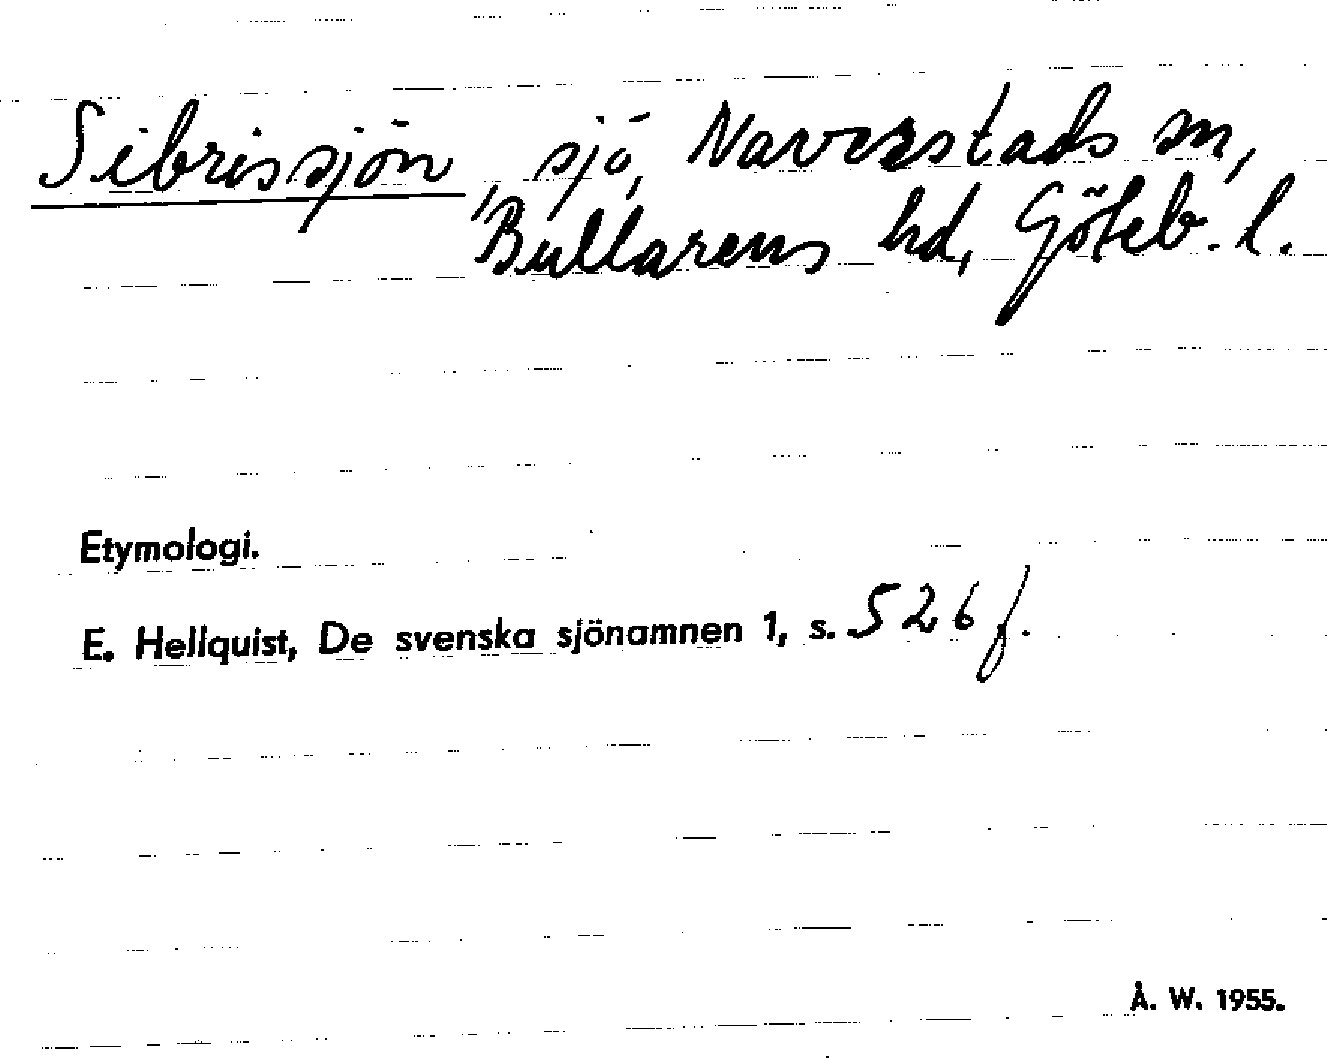 Sibrissjön, sjö, Naverstads sn,
Bullarens hd, Göteb. l.
Etymologi.
E. Hellquist, De svenska sjönamnen 1, s. 526 f.
Å. W. 1955.